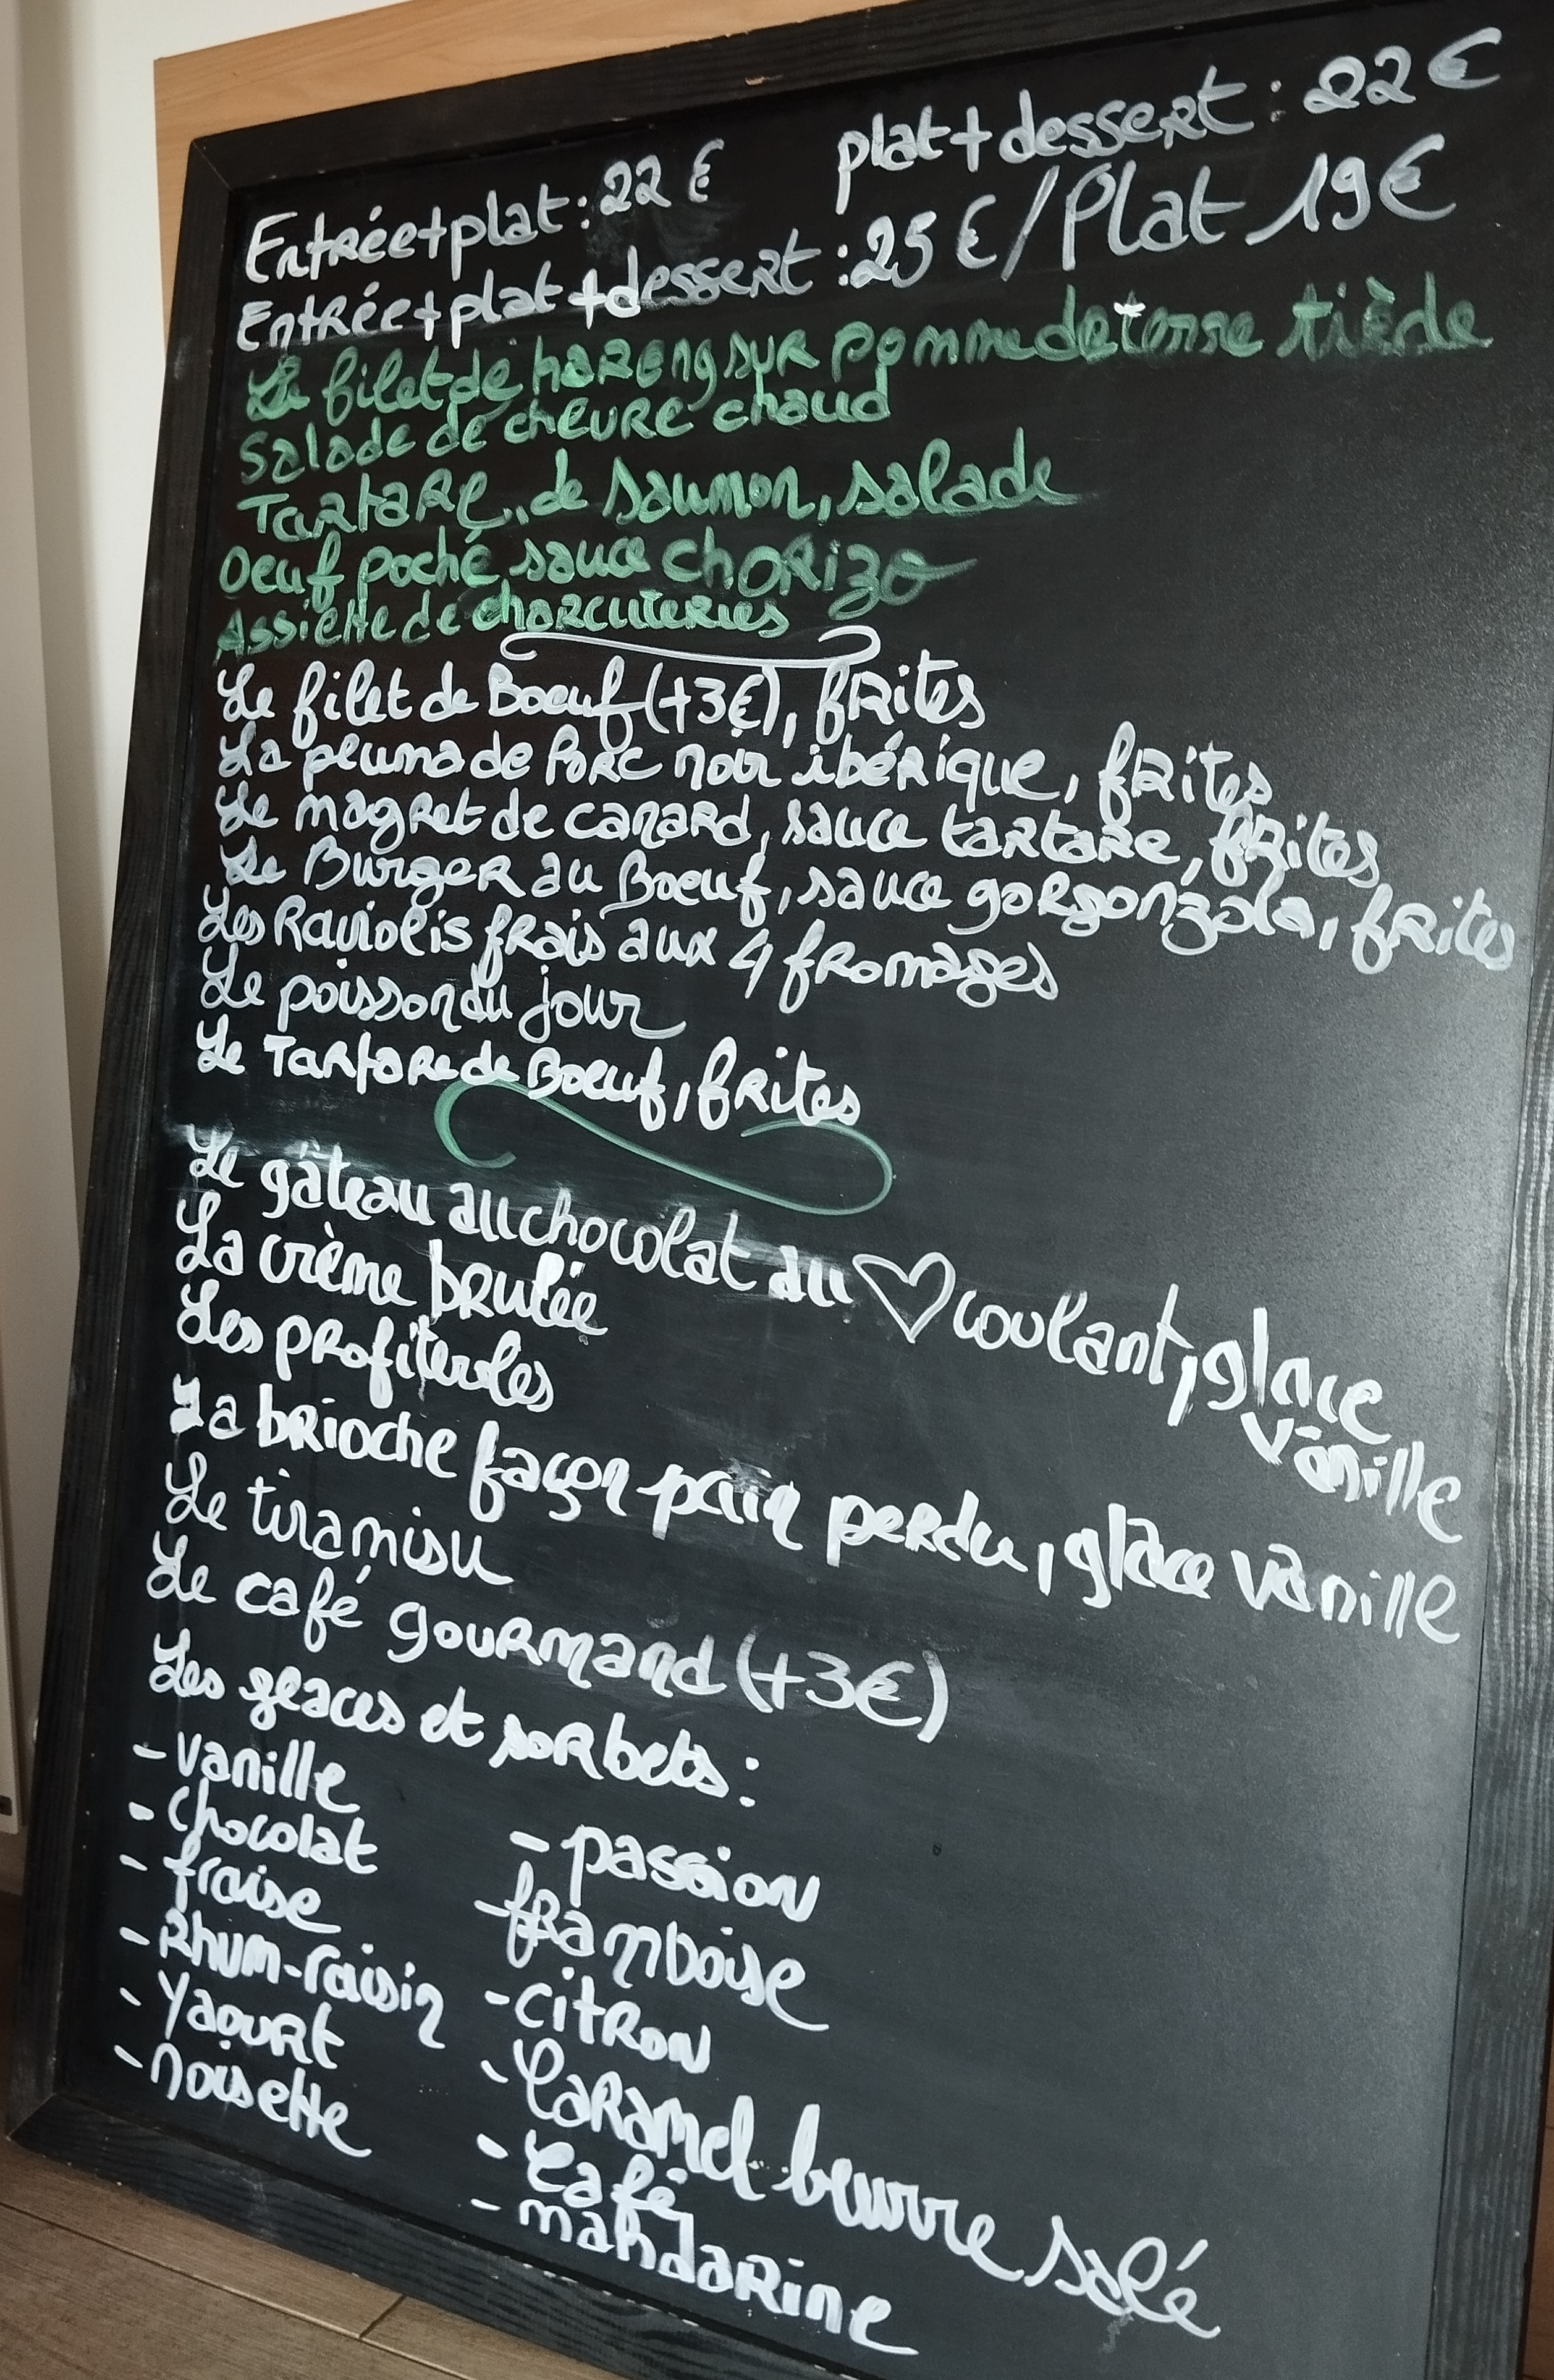 Entrée+plat : 22 € plat+dessert : 22 €
Entrée+plat+dessert : 25 € / Plat 19 €
Le filet de hareng sur pomme de terre tiède
Salade de chèvre chaud
Tartare de saumon, salade
Oeuf poché, sauce chorizo
Assiette de charcuteries
Le filet de Boeuf (+3€), frites
La pluma de Porc noir ibérique, frites
Le magret de canard, sauce tartare, frites
Le Burger au Boeuf, sauce gorgonzola, frites
Les Raviolis frais aux 4 fromages
Le poisson du jour
Le Tartare de Boeuf, frites
Le gâteau au chocolat au ♡ coulant, glace
vanille
La crème brulée
Les profiteroles
La brioche façon pain perdu, glace vanille
Le tiramisu
Le café gourmand (+3€)
Les glaces et sorbets :
- vanille
- Chocolat
- fraise
- Rhum-raisin
- Yaourt
- noisette
- passion
- framboise
- citron
- Caramel beurre salé
- Café
- mandarine